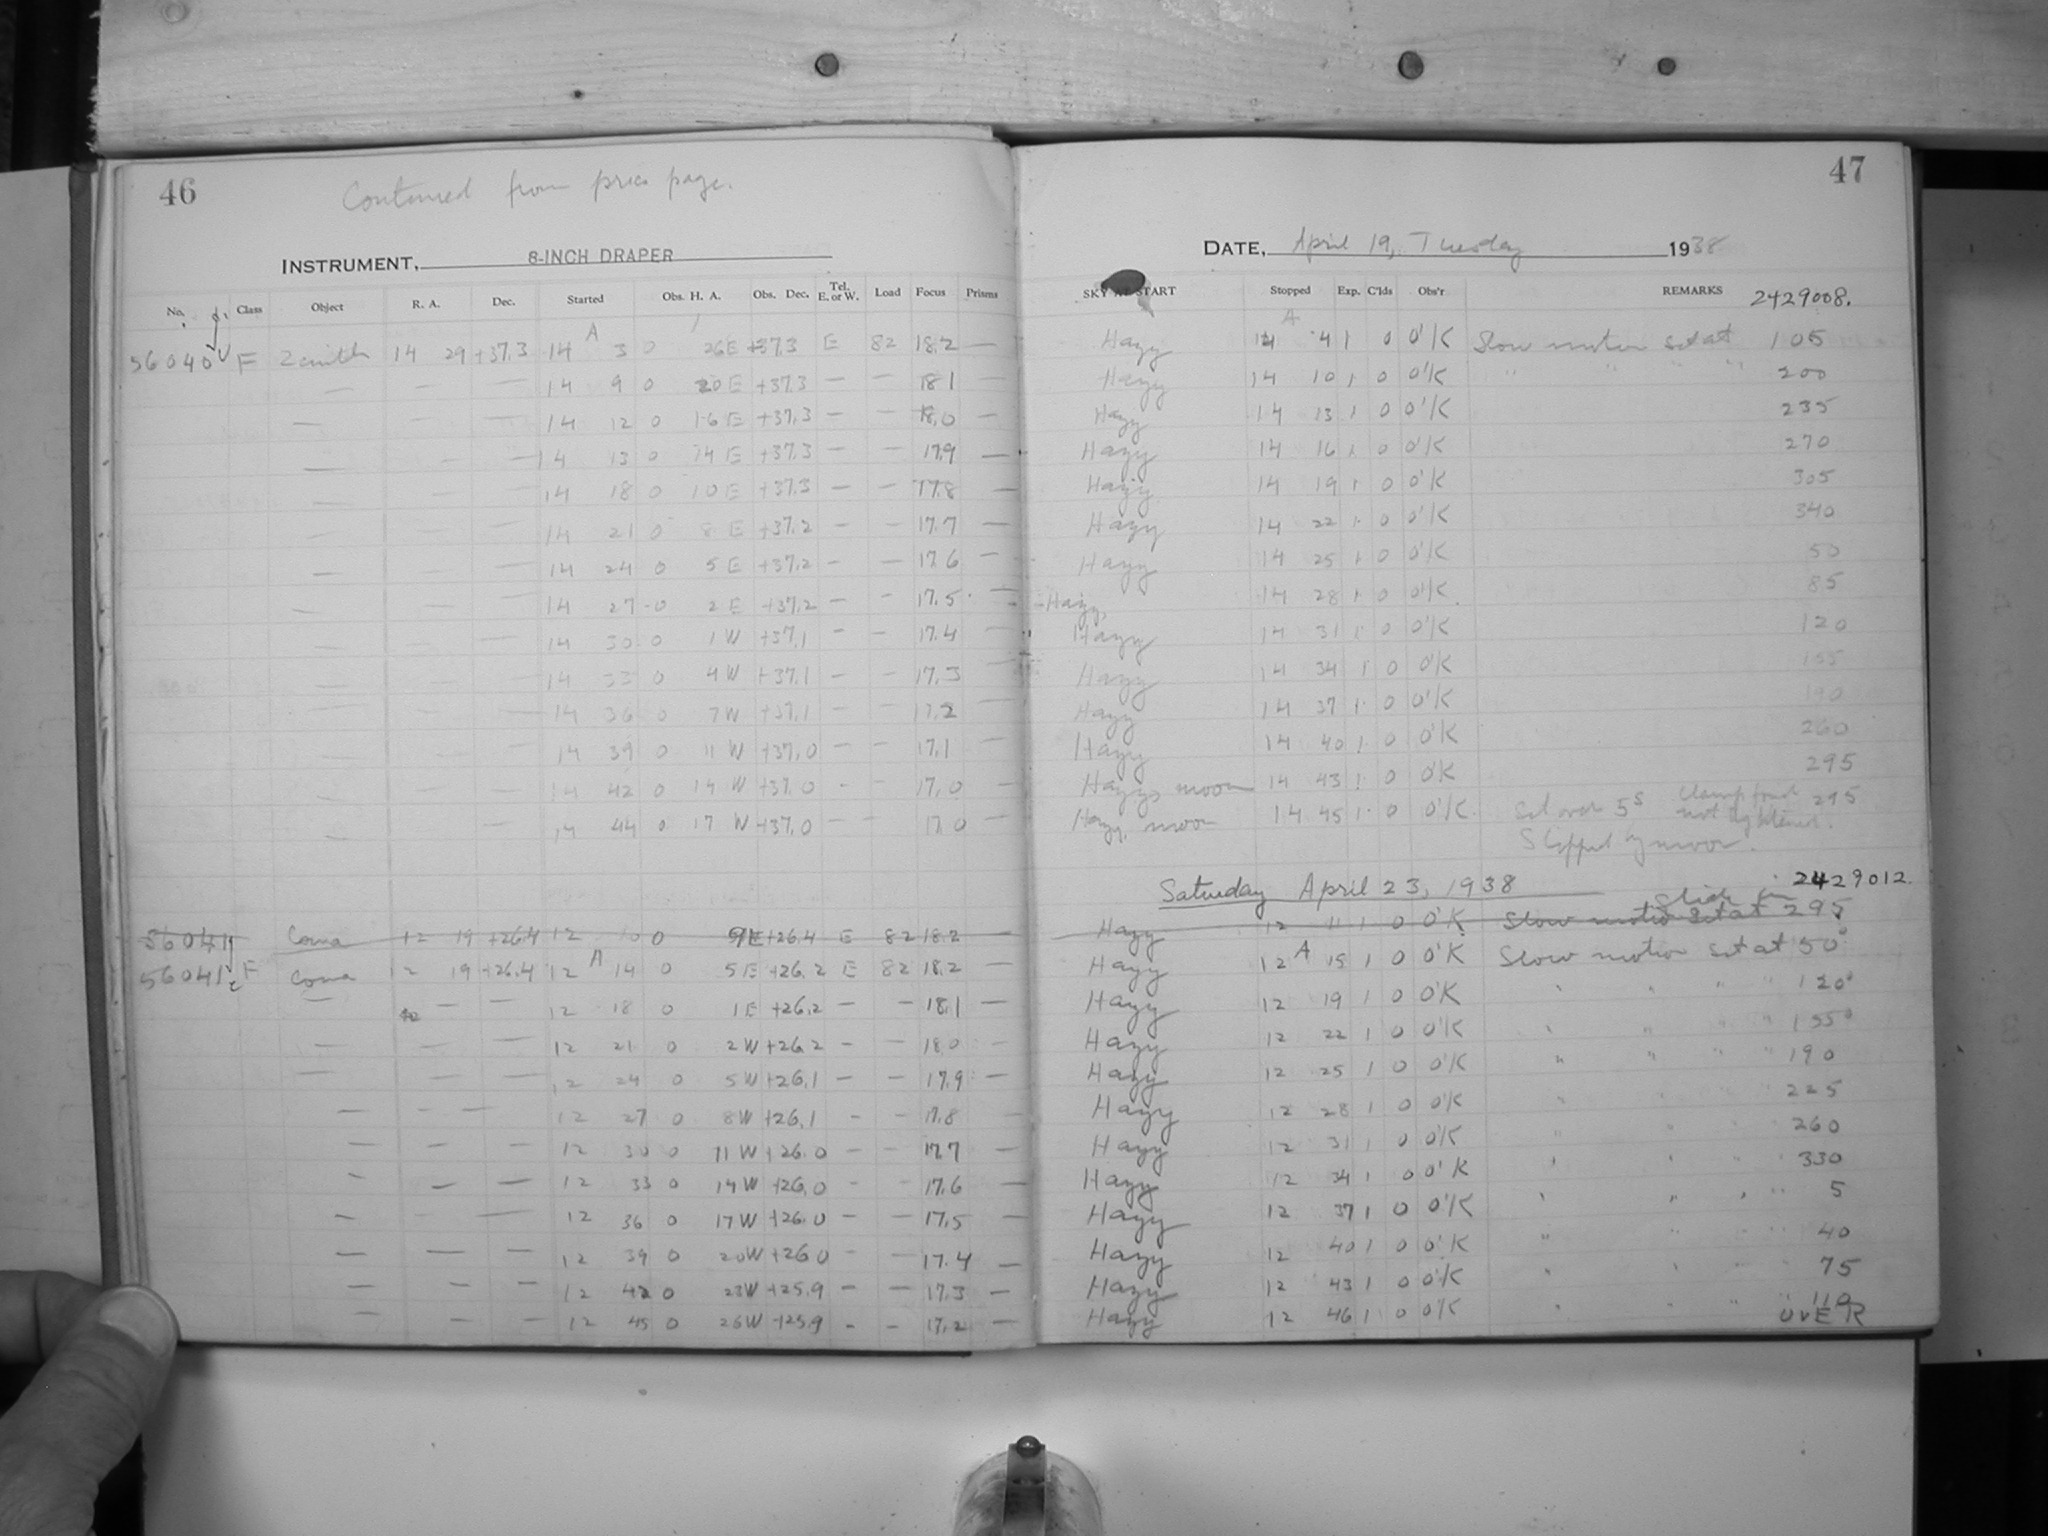 46
Continued from prev page.
INSTRUMENT, 8-INCH DRAPER
No. Class Object R. A. Dec. Started Obs. H. A. Obs. Dec. Tel. E. or W. Load Focus Prisms
56040 F Zenith 14 29 +37.3 14 A 3 0 26E +37.3 E 82 18.2 —
— — — 14 9 0 20 E +37.3 — — 18.1 —
— — — 14 12 0 16 E +37.3 — — 18.0 —
— — — 14 13 0 14 E +37.3 — — 17.9 —
— — — 14 18 0 10 E +37.3 — — 17.8 —
— — — 14 21 0 8 E +37.2 — — 17.7 —
— — — 14 24 0 5 E +37.2 — — 17.6 —
— — — 14 27 0 2 E +37.2 — — 17.5 —
— — — 14 30 0 1 W +37.1 — — 17.4 —
— — — 14 33 0 4 W +37.1 — — 17.3 —
— — — 14 36 0 7 W +37.1 — — 17.2 —
— — — 14 39 0 11 W +37.0 — — 17.1 —
— — — 14 42 0 14 W +37.0 — — 17.0 —
— — — 14 44 0 17 W +37.0 — — 17.0 —
56041 Coma 12 19 +26.4 12 10 0 9E +26.4 E 82 18.2 —
56041 F Coma 12 19 +26.4 12 A 14 0 5 E +26.2 E 82 18.2 —
— — — 12 18 0 1 E +26.2 — — 18.1 —
— — — 12 21 0 2 W +26.2 — — 18.0 —
— — — 12 24 0 5 W +26.1 — — 17.9 —
— — — 12 27 0 8 W +26.1 — — 17.8 —
— — — 12 30 0 11 W +26.0 — — 17.7 —
— — — 12 33 0 14 W +26.0 — — 17.6 —
— — — 12 36 0 17 W +26.0 — — 17.5 —
— — — 12 39 0 20 W +26.0 — — 17.4 —
— — — 12 42 0 23 W +25.9 — — 17.3 —
— — — 12 45 0 26 W +25.9 — — 17.2 —
47
DATE, April 19, Tuesday 1938
SKY AT START Stopped Exp. C'lds Obs'r REMARKS 2429008.
Hazy 14 A 4 1 0 O'K Slow motion set at 105
Hazy 14 10 1 0 O'K " " " " 200
Hazy 14 13 1 0 O'K 235
Hazy 14 16 1 0 O'K 270
Hazy 14 19 1 0 O'K 305
Hazy 14 22 1 0 O'K 340
Hazy 14 25 1 0 O'K 50
Hazy 14 28 1 0 O'K 85
Hazy 14 31 1 0 O'K 120
Hazy 14 34 1 0 O'K 155
Hazy 14 37 1 0 O'K 190
Hazy 14 40 1 0 O'K 260
Hazy, moon 14 43 1 0 O'K 295
Hazy, moon 14 45 1 0 O'K Set over 5s Clamp found 295
not tightened.
Stopped by moon.
Saturday April 23, 1938 2429012.
Slide in
Hazy 12 11 1 0 O'K Slow motion set at 295
Hazy 12 A 15 1 0 O'K Slow motion set at 50°
Hazy 12 19 1 0 O'K " " " " 120°
Hazy 12 22 1 0 O'K " " " " 155°
Hazy 12 25 1 0 O'K " " " " 190
Hazy 12 28 1 0 O'K " " " " 225
Hazy 12 31 1 0 O'K " " " " 260
Hazy 12 34 1 0 O'K " " " " 330
Hazy 12 37 1 0 O'K " " " " 5
Hazy 12 40 1 0 O'K " " " " 40
Hazy 12 43 1 0 O'K " " " " 75
Hazy 12 46 1 0 O'K " " " " 110
OVER